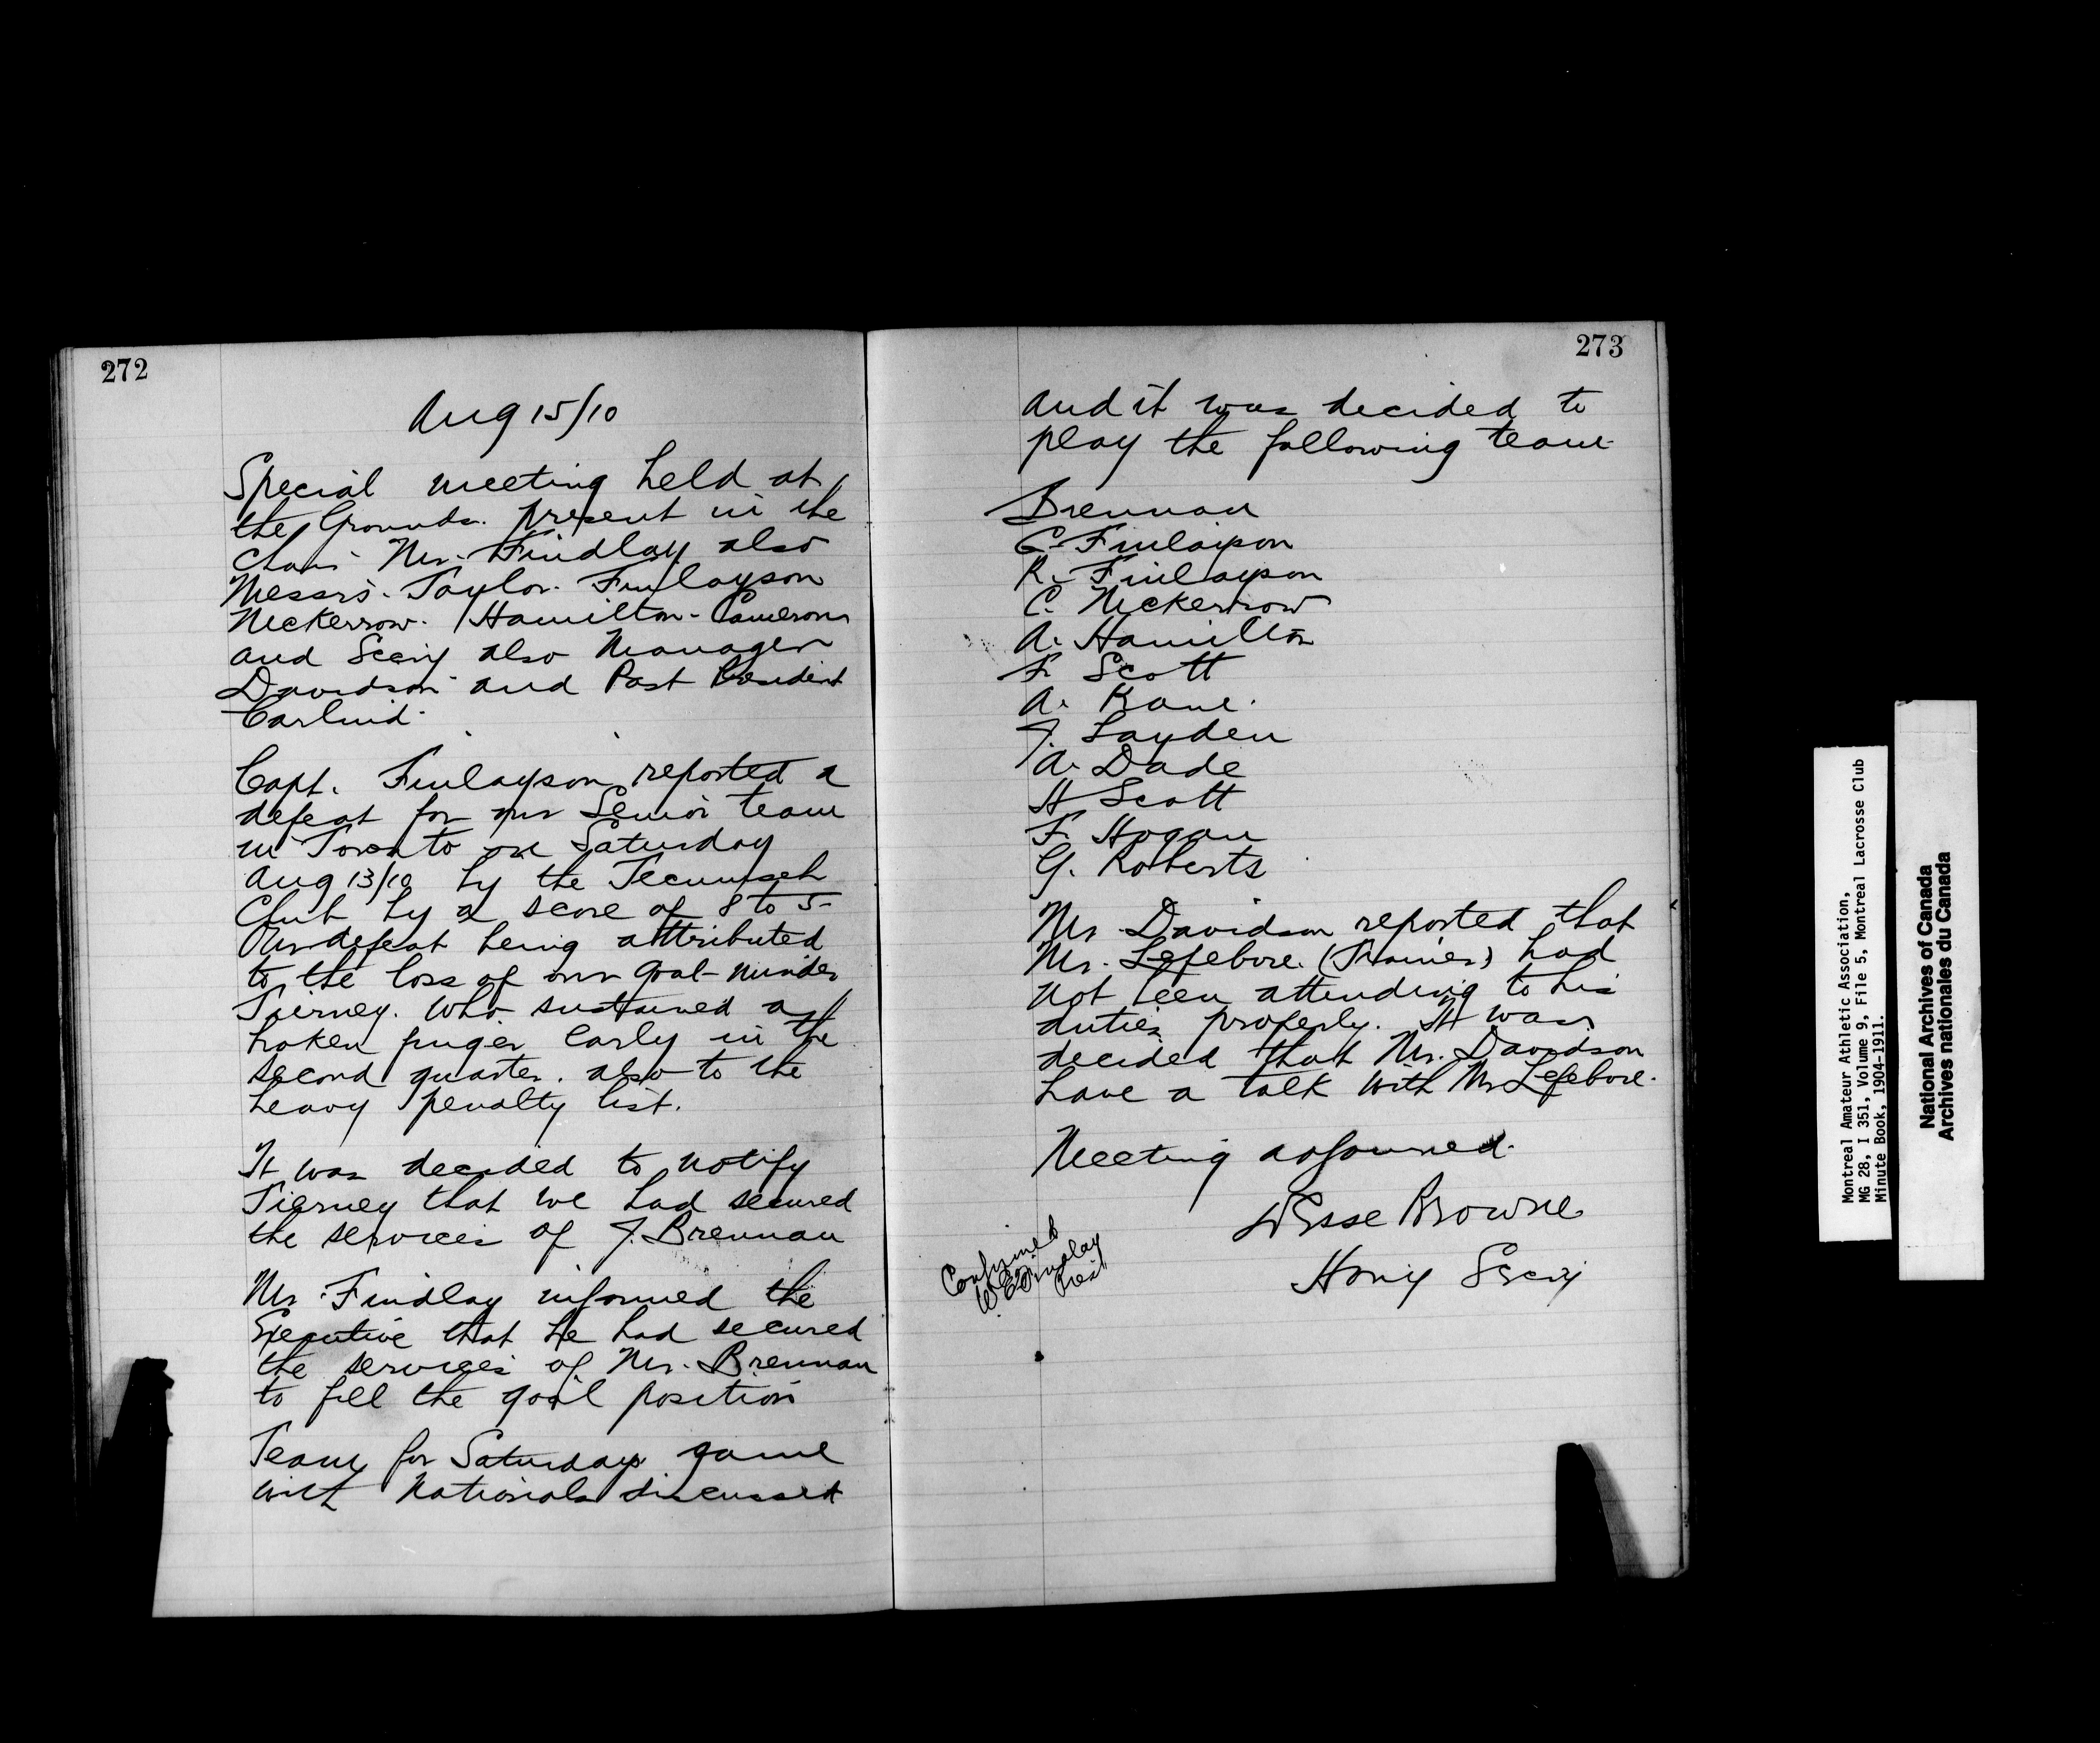 272
Aug 15/10
Special meeting held at
the Grounds. present in the
chair Mr. Findlay also
Messrs. Taylor. Finlayson
McKerrow. Hamilton - Cameron
and Seery also Manager
Davidson and Past President
Carlind.
Capt. Finlayson reported a
defeat for our Senior team
in Toronto on Saturday
Aug 13/10 by the Tecumseh
Club by a score of 8 to 5-
Our defeat being attributed
to the loss of our goal-minder
Tierney. who sustained a
broken finger early in the
second quarter. also to the
heavy penalty list.
It was decided to notify
Tierney that we had secured
the services of J. Brennan
Mr. Findlay informed the
Executive that he had secured
the services of Mr. Brennan
to fill the goal position
Team for Saturdays game
with Nationals discussed
273
and it was decided to
play the following team-
Brennan
G. Finlayson
R. Finlayson
C. McKerrow
A. Hamilton
F. Scott
A. Kane.
J. Layden
A. Dade
H Scott
F. Hogan
G. Roberts
Mr Davidson reported that
Mr. Lefebvre. (Trainer) had
not been attending to his
duties properly. It was
decided that Mr. Davidson
have a talk with Mr Lefebvre.
Meeting adjourned.
Jesse Browne
Harry Seery
Confirmed
W E Findlay
Pres
Montreal Amateur Athletic Association,
MG 28, I 351, Volume 9, File 5, Montreal Lacrosse Club
Minute Book, 1904-1911.
National Archives of Canada
Archives nationales du Canada